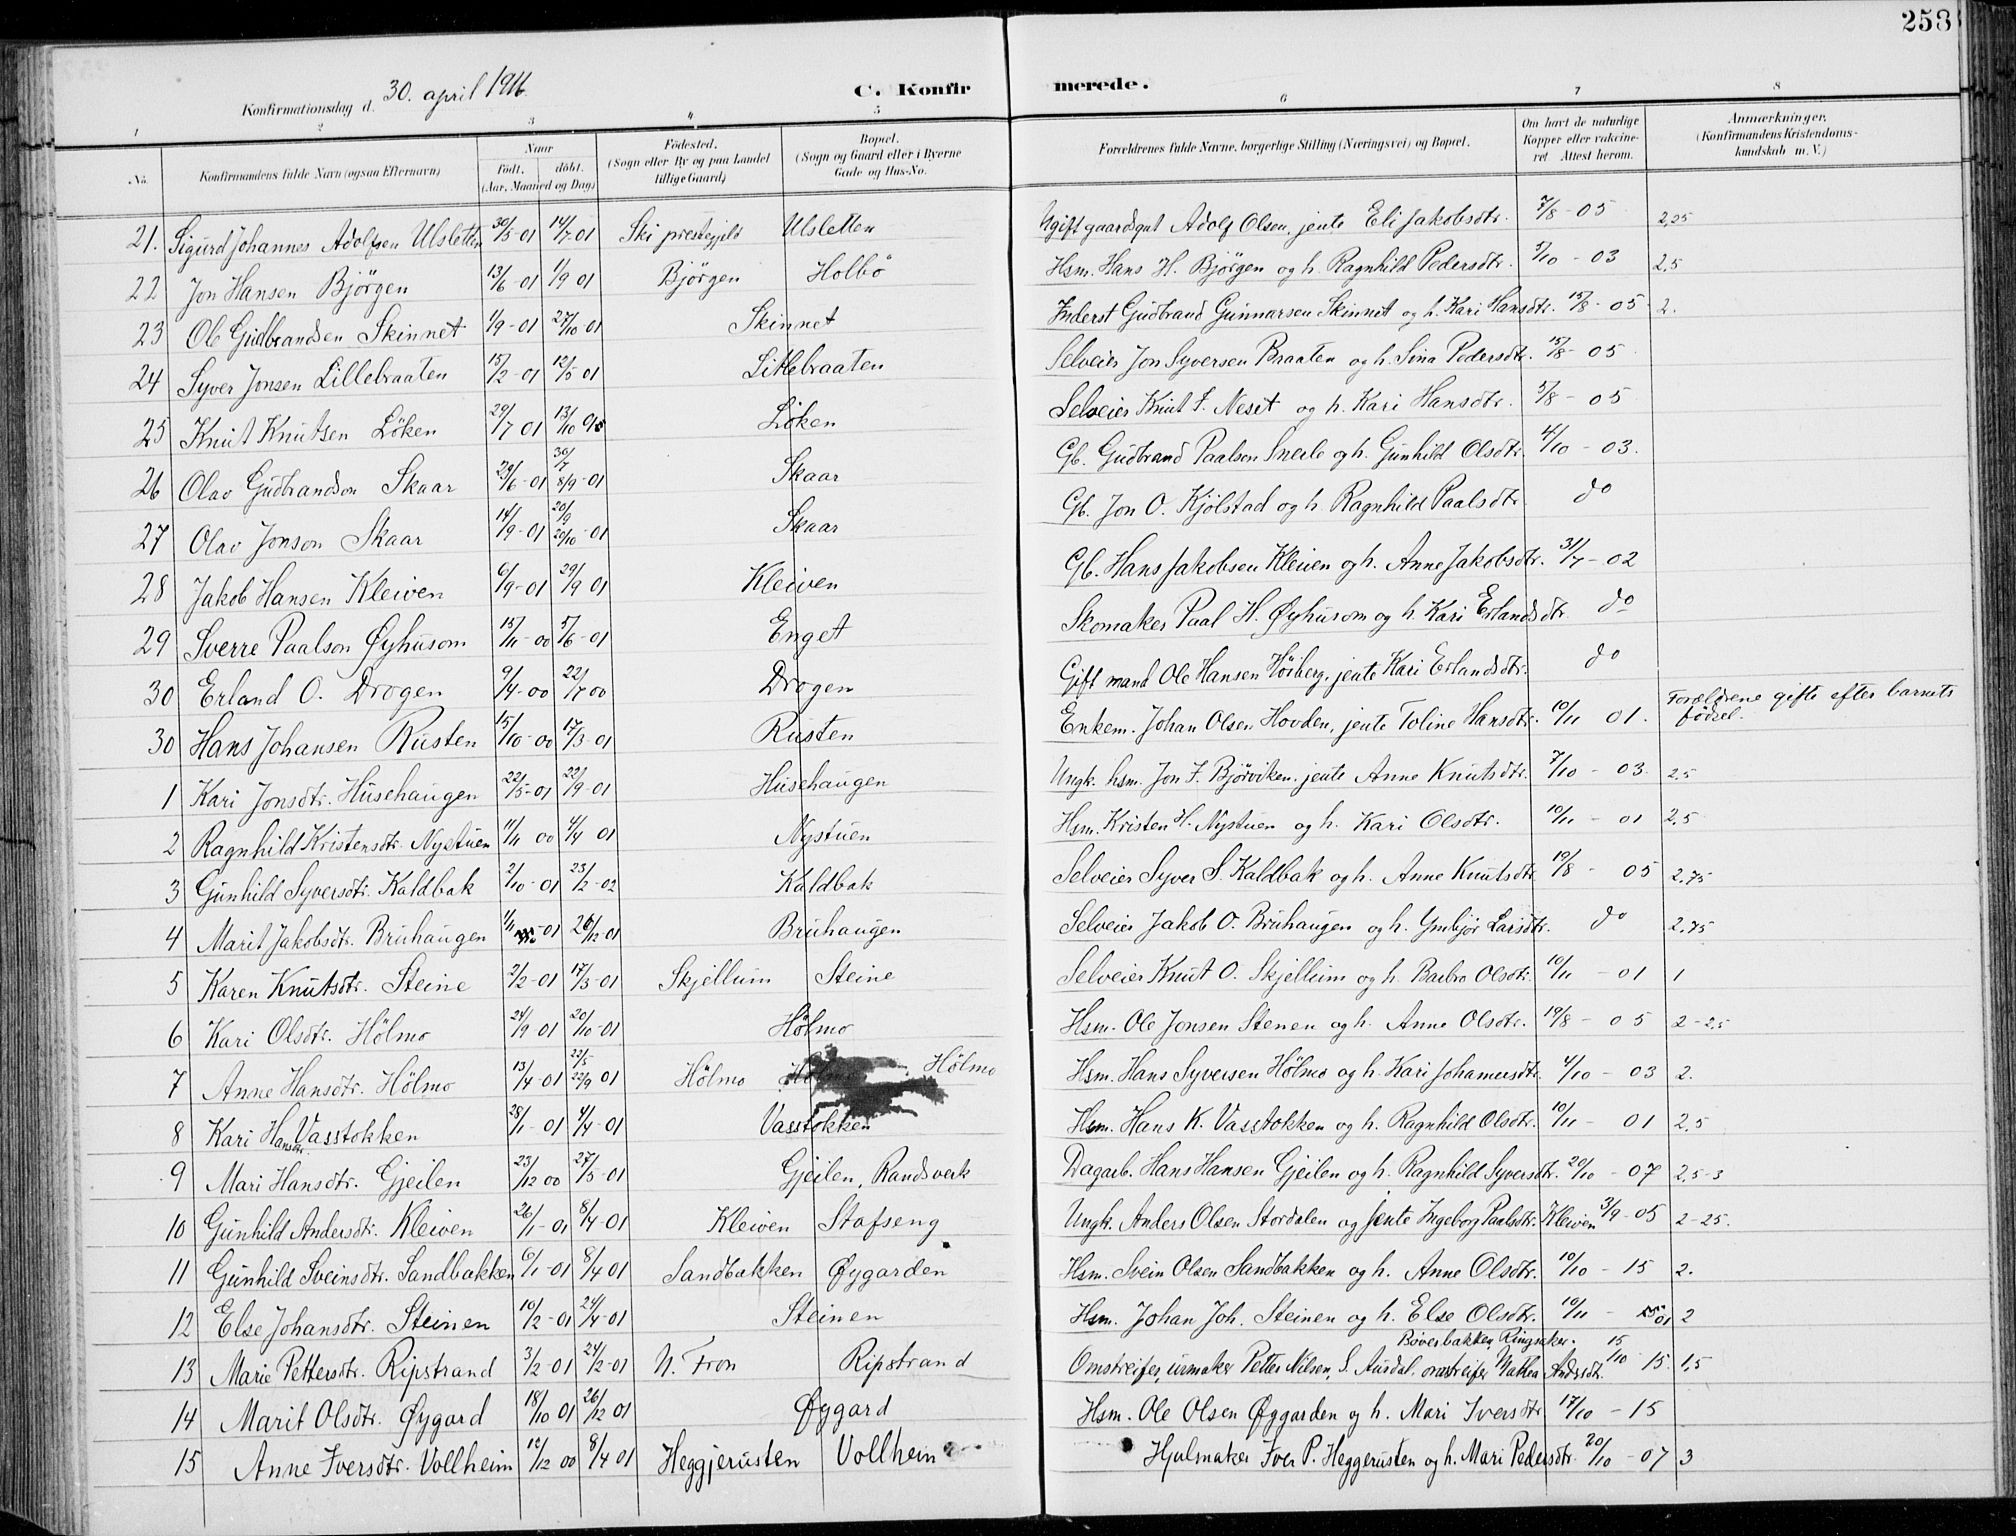 258
Konfirmationsdag d. 30. april 1916 C. Konfirmerede.
1 2 3 4 5 6 7 8
No. Konfirmandens fulde Navn (ogsaa Efternavn) Naar født. døbt. (Aar, Maaned og Dag) Fødested. (Sogn eller By og paa Landet tillige Gaard) Bopæl. (Sogn og Gaard eller i Byerne Gade og Hus-No. Forældrenes fulde Navne, borgerlige Stilling (Næringsvei) og Bopæl. Om havt de naturlige Kopper eller vakcineret. Attest herom. Anmærkninger. (Konfirmandens Kristendomskundskab m. V.)
21. Sigurd Johannes Adolfsen Ulsletten 30/5-01 14/7-01 Ski prestegjeld Ulsletten Ugift gaardsgut Adolf Olsen, jente Eli Jakobsdtr. 7/8-05 2,25
22 Jon Hansen Bjørgen 13/6-01 1/9 01 Bjørgen Holbø Hsm. Hans H. Bjørgen og h. Ragnhild Pedersdtr. 5/10-03 2,5
23 Ole Gudbrandsen Skinnet 1/9-01 27/10-01 Skinnet Inderst Gudbrand Gunnarsen Skinnet og h. Kari Hansdtr. 15/8-05 2.
24 Syver Jonsen Lillebraaten 15/2-01 12/5-01 Littebraaten Selveier Jon Syversen Braaten og h. Sina Pedersdtr. 15/8-05
25 Knut Knutsen Løken 29/7 01 13/10 01 Løken Selveier Knut I. Neset og h. Kari Hansdtr. 5/8-05
26 Olav Gudbrandson Skaar 29/6-01 30/7 8/9-01 Skaar Gb. Gudbrand Paalsen Snerle og h. Gunhild Olsdtr. 4/10-03.
27 Olav Jonson Skaar 14/9-01 20/9 20/10-01 Skaar Gb. Jon O. Kjølstad og h. Ragnhild Paalsdtr do
28 Jakob Hansen Kleiven 6/9-01 29/9 01 Kleiven Gb. Hans Jakobsen Kleiven og h. Anne Jakobsdtr. 31/7-02
29 Sverre Paalson Øyhusom 15/11-00 5/6-01 Enget Skomaker Paal H. Øyhusom og h. Kari Erlandsdtr. do
30 Erland O. Drogen 9/4-00 22/7 00 Drogen Gift mand Ole Hansen Høiberg, jente Kari Erlandsdtr. do
30 Hans Johansen Rusten 15/10-00 17/3-01 Rusten Enkem. Johan Olsen Hovden, jente Toline Hansdtr. 10/11 01. Forældrene gifte efter barnets fødsel.
1 Kari Jonsdtr. Husehaugen 22/5-01 22/9-01 Husehaugen Ungk. hsm. Jon I. Bjørviken, jente Anne Knutsdtr. 7/10-03. 2,5
2 Ragnhild Kristensdtr. Nystuen 11/11 00 4/4 01 Nystuen Hsm. Kristen H. Nystuen og h. Kari Olsdtr. 10/11-01 2,5
3 Gunhild Syversdtr. Kaldbak 2/10-01 23/2-02 Kaldbak Selveier Syver S. Kaldbak og h. Anne Knutsdtr 19/8-05 2,75
4 Marit Jakobsdtr. Bruhaugen 1/11-01 26/12-01 Bruhaugen Selveier Jakob O. Bruhaugen og h. Ymbjør Larsdtr. do 2,75
5 Karen Knutsdtr. Steine 2/2-01 17/3-01 Skjellum Steine Selveier Knut O. Skjellum og h. Barbro Olsdtr. 10/11-01 1
6 Kari Olsdtr. Hølmo 24/9 01 20/10-01 Hølmo Hsm. Ole Jonsen Stenen og h. Anne Olsdtr. 19/8-05 2-2,5
7 Anne Hansdtr. Hølmo 13/4-01 22/5 22/9 01 Hølmo Hølmo Hsm. Hans Syversen Hølmo og h. Kari Johannesdtr. 4/10-03 2.
8 Kari Hansdtr. Vasstokken 28/1-01 4/4-01 Vasstokken Hsm. Hans K. Vasstokken og h. Ragnhild Olsdtr. 10/11-01 2,5
9 Mari Hansdtr. Gjeilen 23/12 00 27/5-01 Gjeilen, Randsverk Dagarb. Hans Hansen Gjeilen og h. Ragnhild Syversdtr. 20/10-07 2,5-3
10 Gunhild Andersdtr. Kleiven 26/1-01 8/4-01 Kleiven Stafseng Ungk. Anders Olsen Stordalen og jente Ingeborg Paalsdtr. Kleiven 3/9-05 2-25.
11 Gunhild Sveinsdtr. Sandbakken 6/1-01 8/4 01 Sandbakken Øygarden Hsm. Svein Olsen Sandbakken og h. Anne Olsdtr. 10/10-15 2.
12 Else Johansdtr. Steinen 10/2-01 24/4-01 Steinen Hsm. Johan Joh. Steinen og h. Else Olsdtr. 10/11-01 2
13 Marie Pettersdtr. Ripstrand 3/2-01 24/2-01 N. Fron Ripstrand Omstreifer, urmaker Petter Nilsen, S. Aurdal, omstreifer Mathea Andersdtr. Bøverbakken, Ringsaker. 15/10-15. 1,5
14 Marit Olsdtr. Øygard 18/10 01 26/12 01 Øygard Hsm. Ole Olsen Øygarden og h. Mari Iversdtr 17/10-15
15 Anne Iversdtr. Vollheim 12/12 00 8/4 01 Heggjerusten Vollheim Hjulmaker Iver P. Heggerusten og h. Mari Pedersdtr. 20/10-07 3